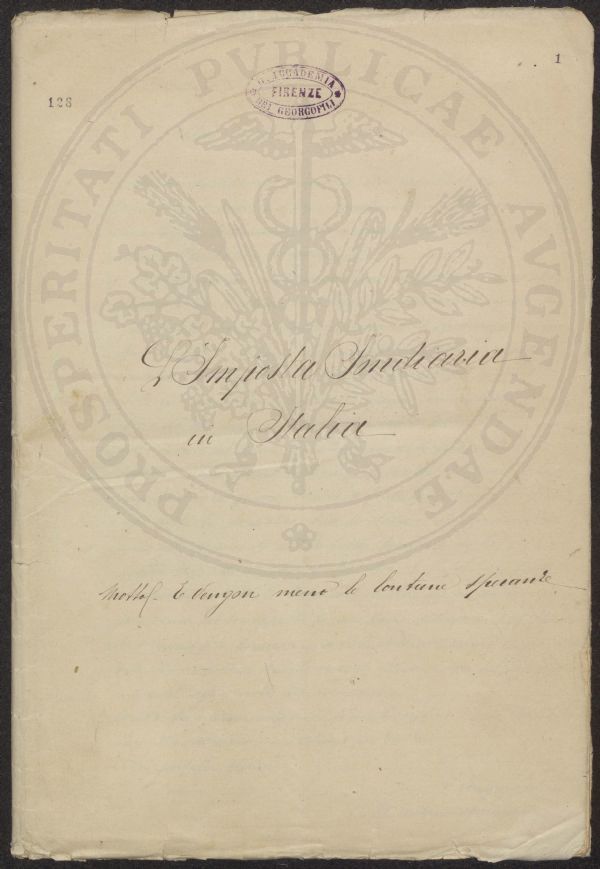 128
1
R. ACCADEMIA
FIRENZE
DEI GEORGOFILI
PROSPERITATI PVBLICAE AVGENDAE
L'Imposta Fondiaria
in Italia
Motto/ - E vengon meno le lontane speranze